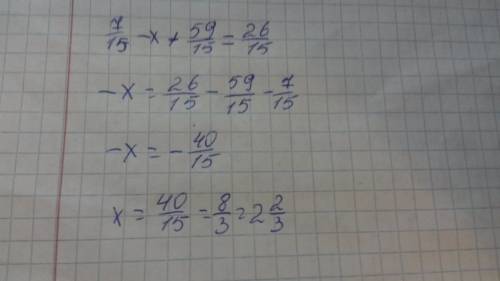 7/15 - x + 59/15 = 26/15
-x = 26/15 - 59/15 - 7/15
-x = - 40/15
x = 40/15 = 8/3 = 2 2/3